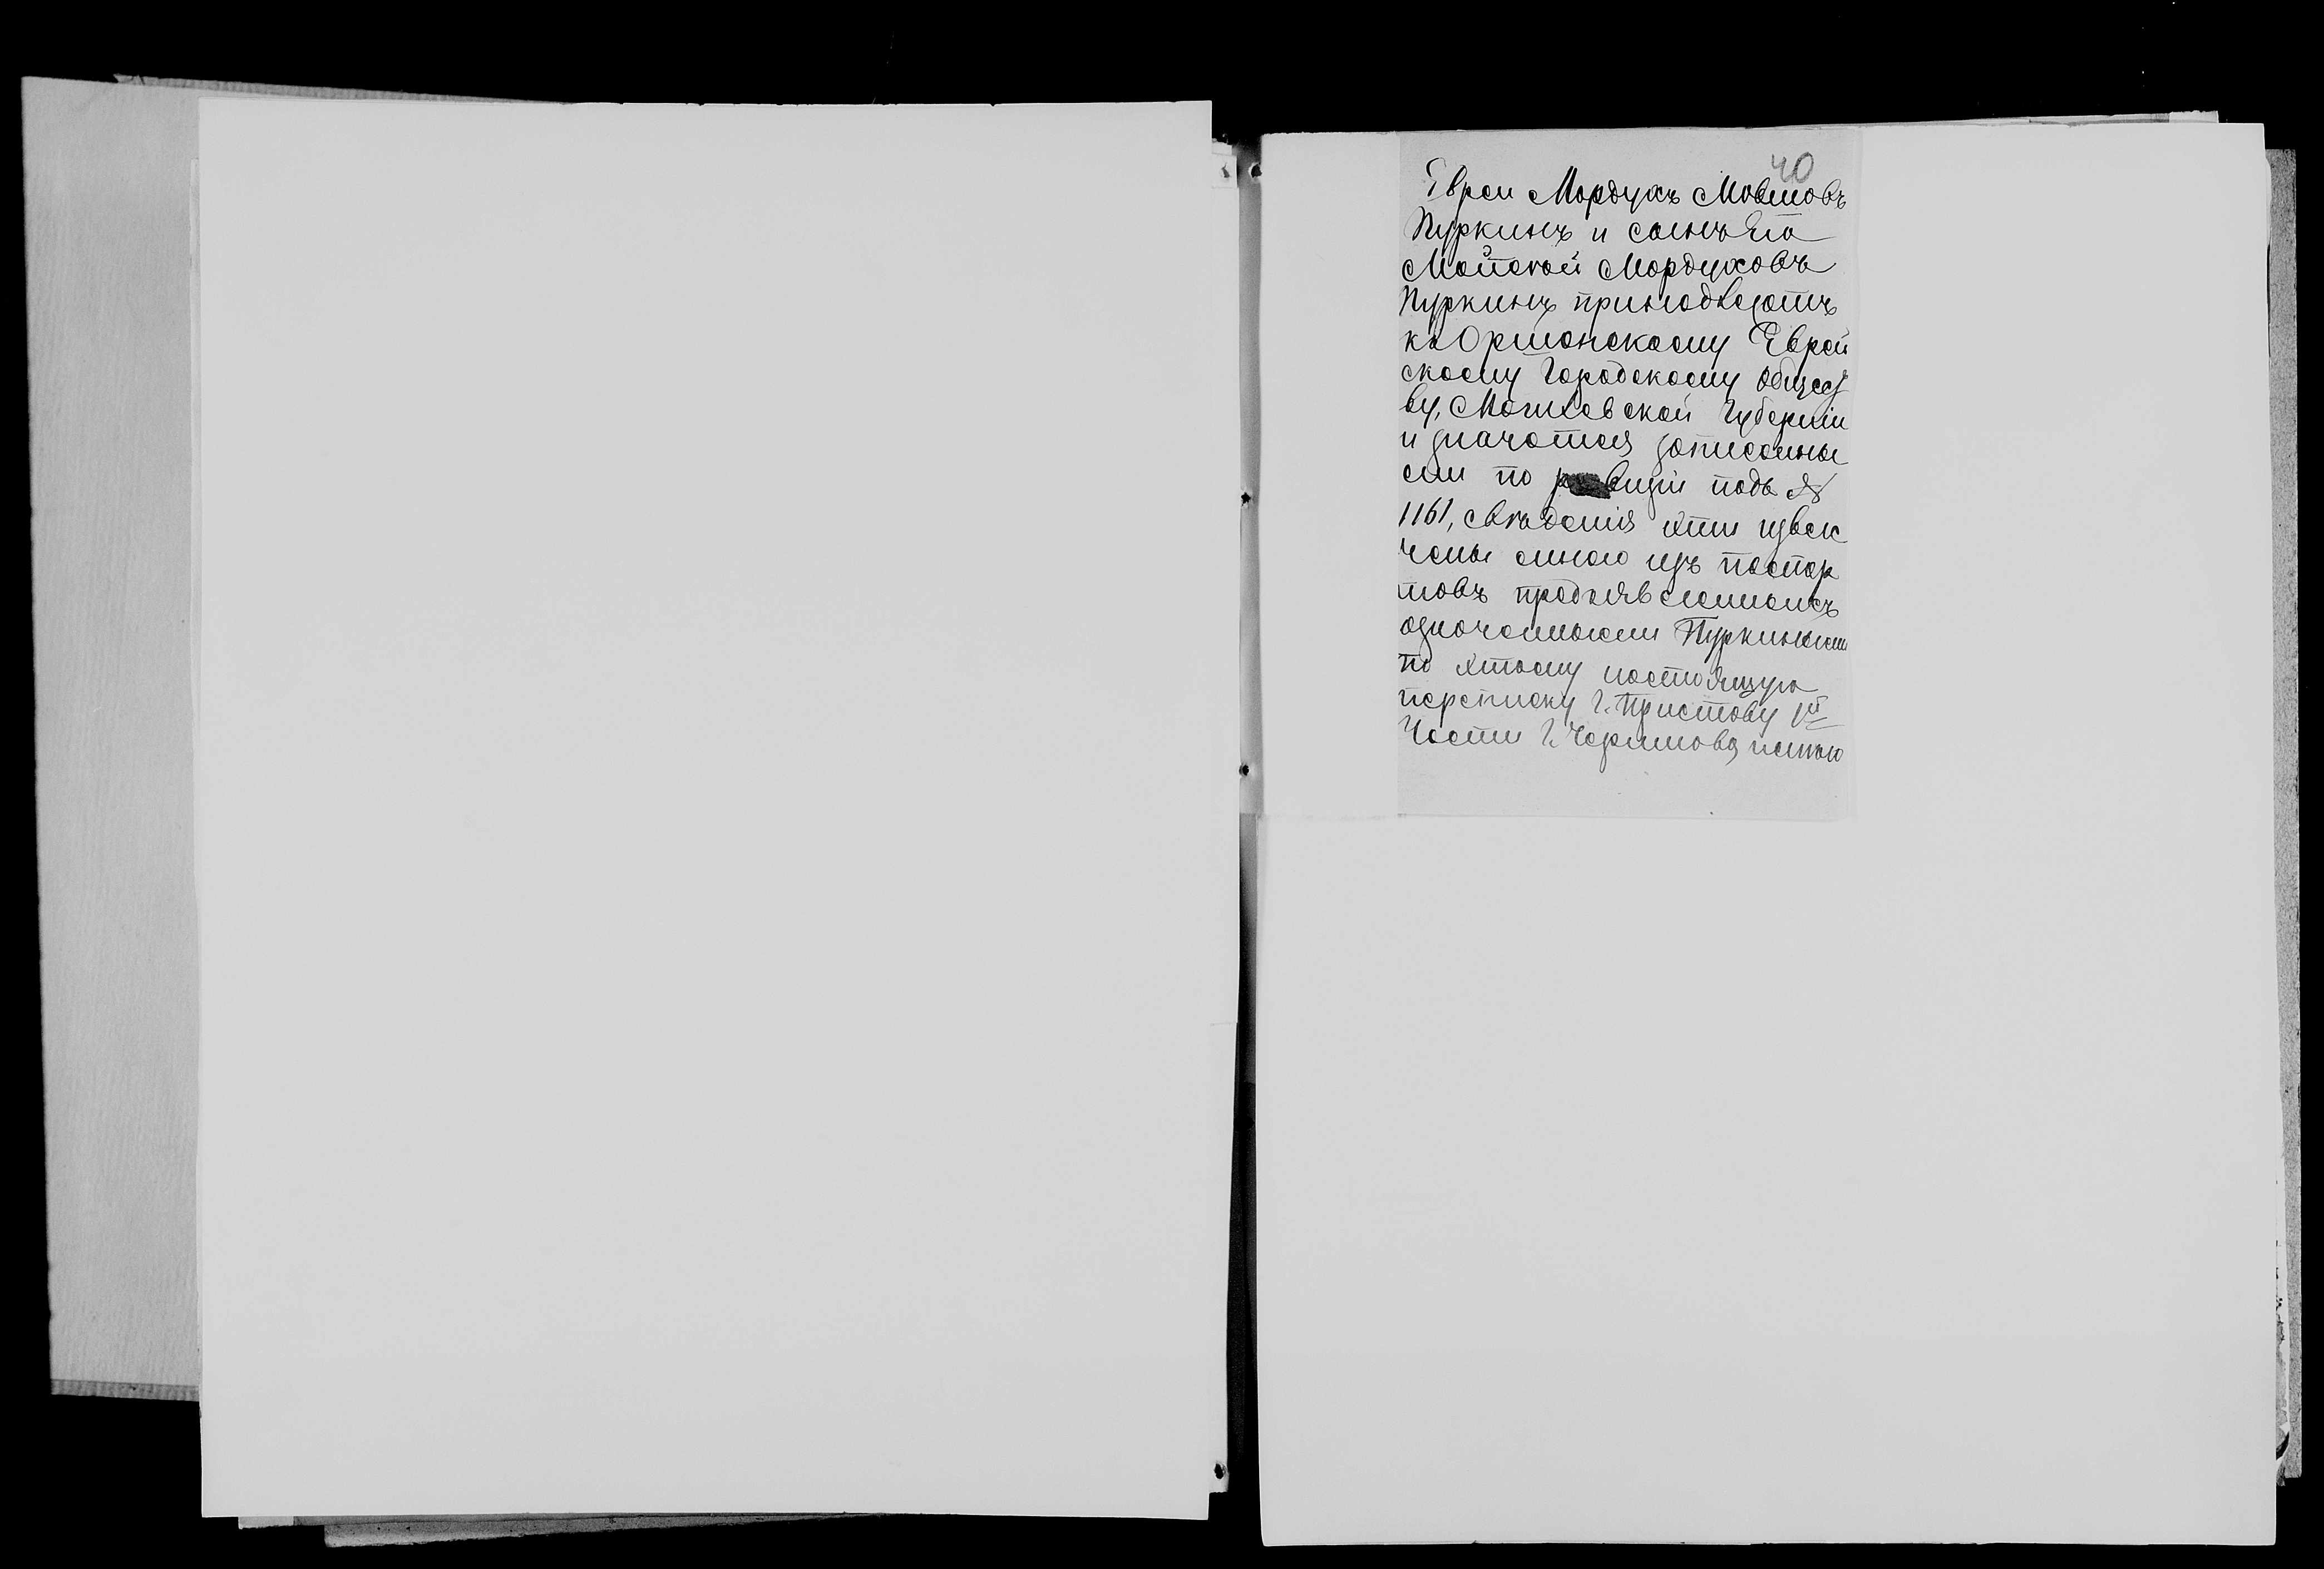 40
Евреи Мордухъ Мовшовъ
Пуркинъ и сынъ его
Мойсей Мордуховъ
Пуркинъ принадлежатъ
къ Оршанскому Еврей
скому Городскому общест
ву, Могилевской Губерніи
и значатся записанны
ми по ревизіи подъ №
1161, сведенія эти извле
чены мною изъ паспор
товъ предъявленныхъ
означенными Пуркиными
по этому настоящую
переписку Г. Приставу 1й
Части Г.